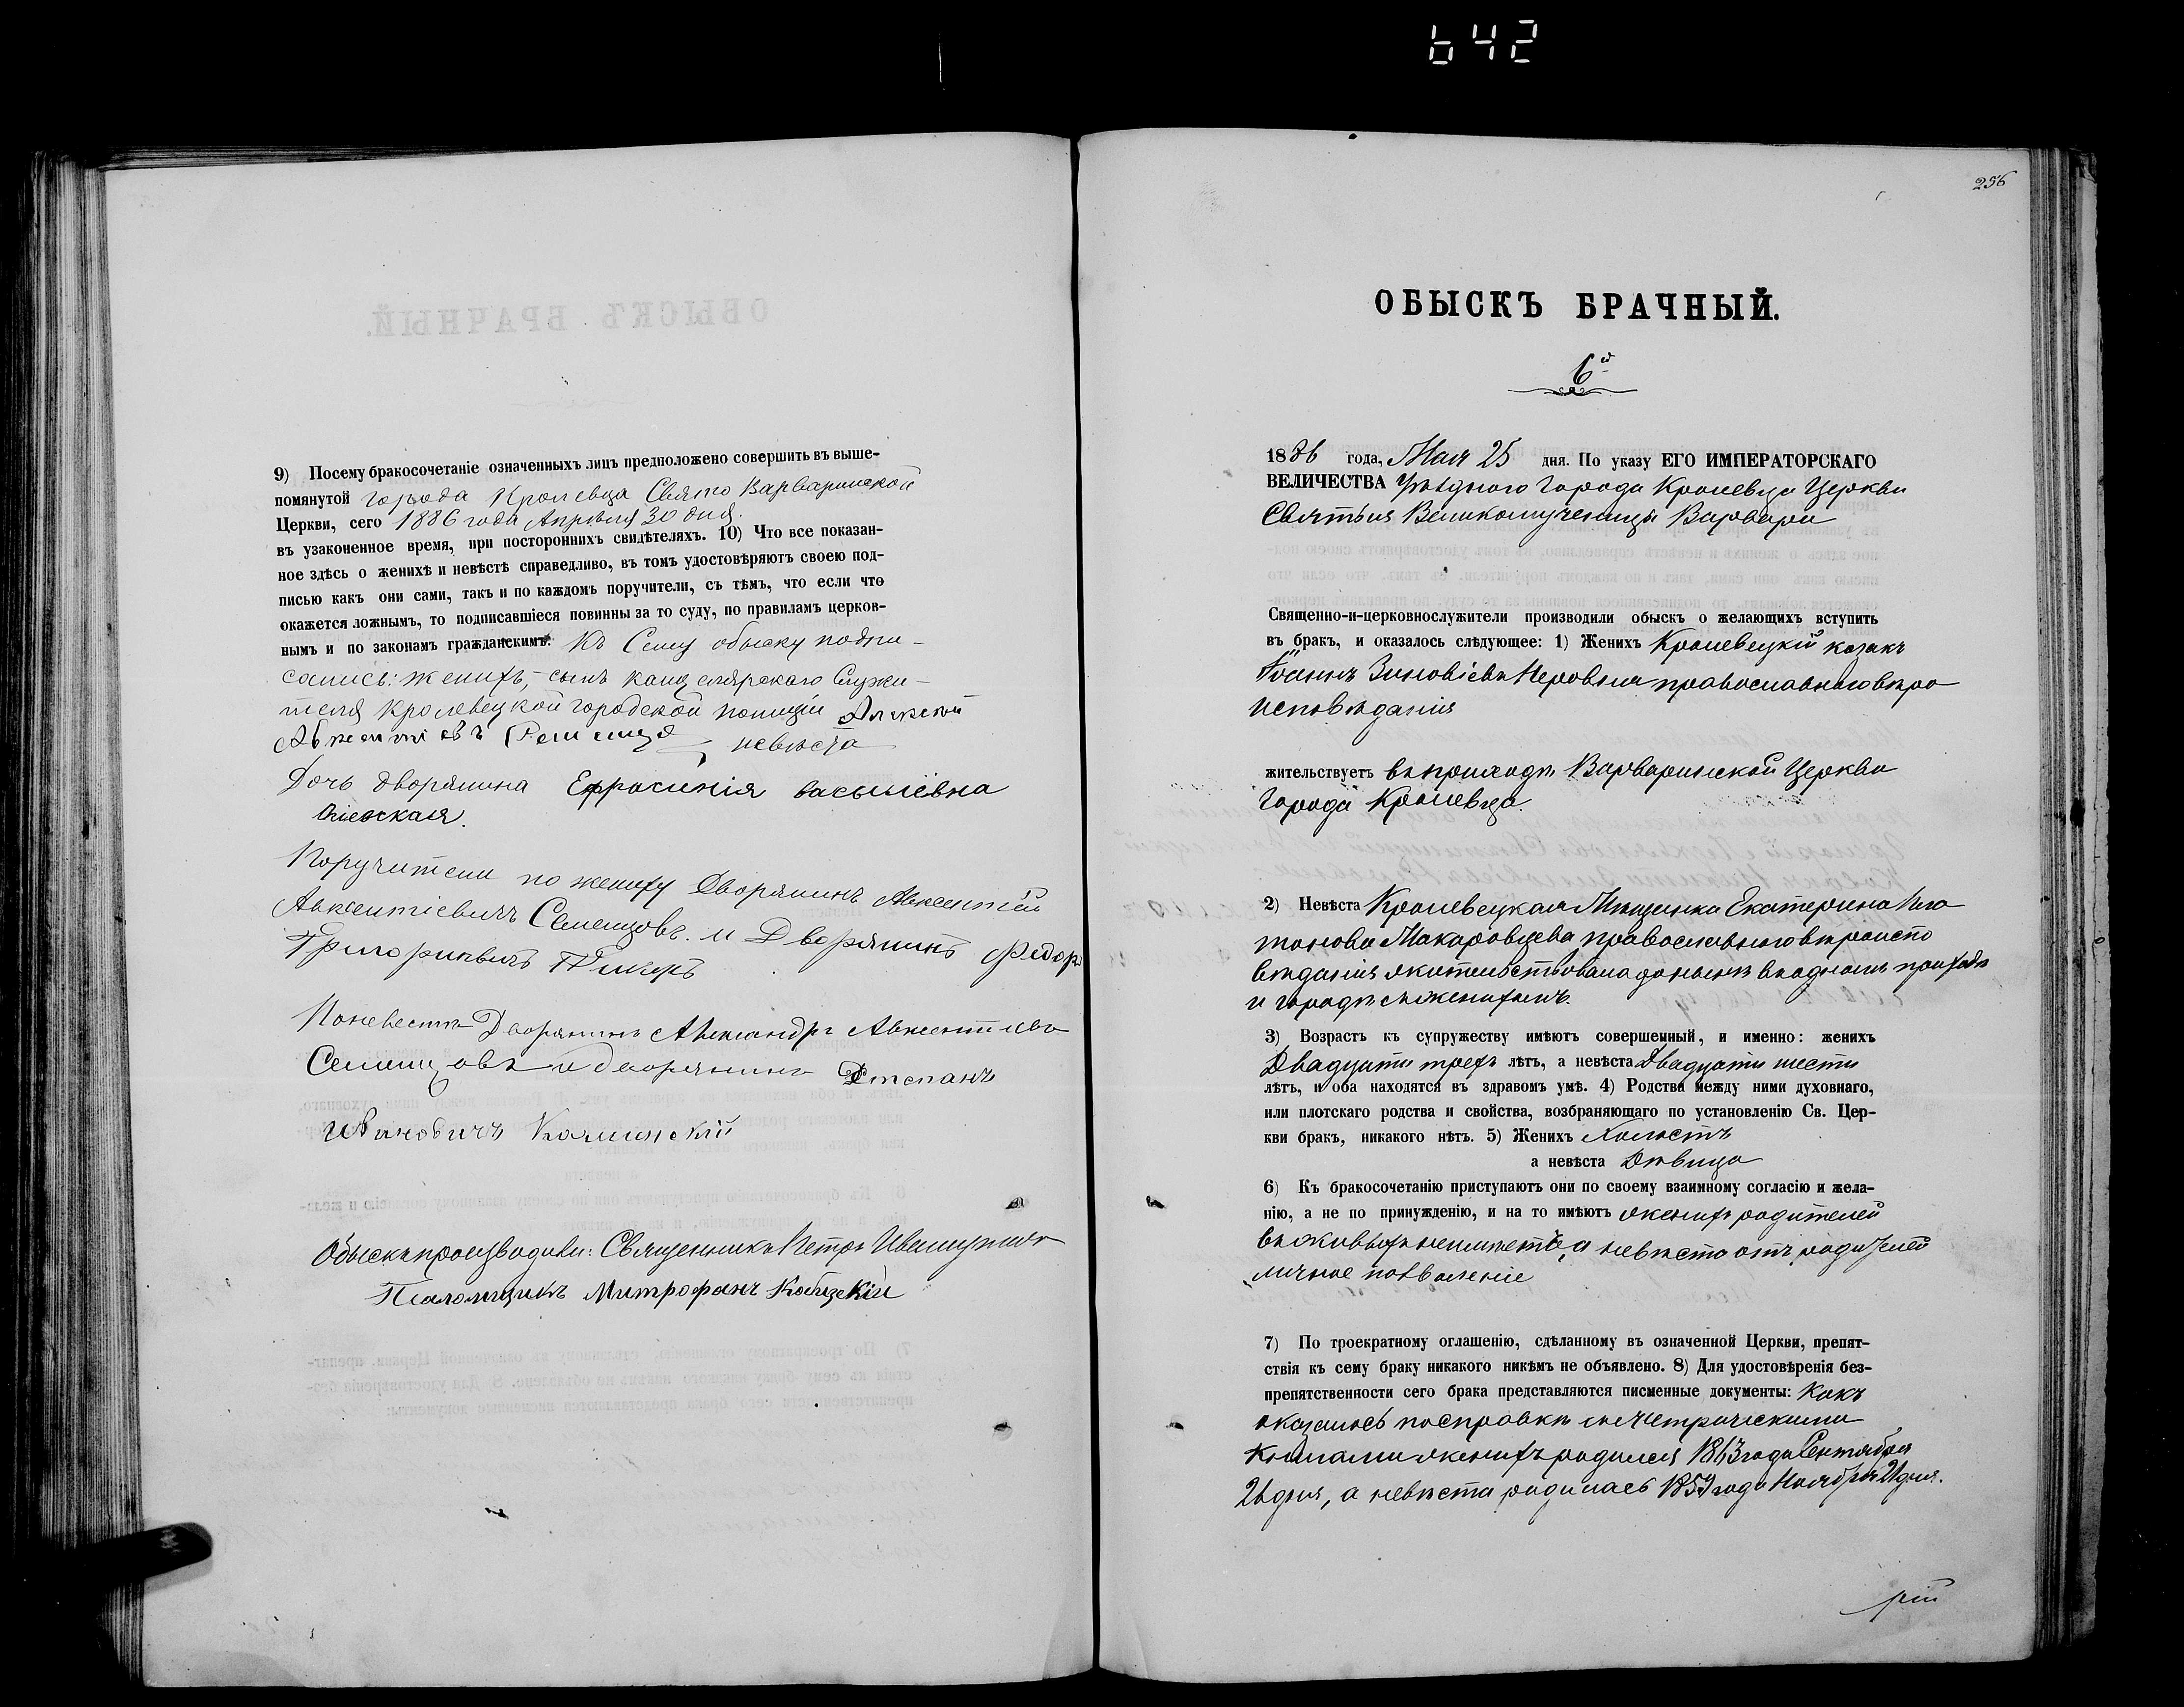 642
9) Посему бракосочетаніе означенныхъ лицъ предположено совершить въ выше-
помянутой города Кролевца Свято Варваринской
Церкви, сего 1886 года Апрѣля 30 дня.
въ узаконенное время, при постороннихъ свидѣтеляхъ. 10) Что все показан-
ное здѣсь о женихѣ и невѣстѣ справедливо, въ томъ удостовѣряютъ своею под-
писью какъ они сами, такъ и по каждомъ поручители, съ тѣмъ, что если что
окажется ложнымъ, то подписавшіеся повинны за то суду, по правиламъ церков-
нымъ и по законамъ гражданскимъ. Къ Сему обыску подпи-
сались: женихъ, сынъ канцелярскаго Служи-
теля Кролевецкой городской полиціи Алексей
невѣста
Дочь дворянина Ефросинія васыліевна
Поручители по жениху Дворянинъ Авксентій
Авксентіевичъ Семенцовъ. и Дворянинъ Федоръ
Григориевичъ
Поневестѣ Дворянинъ Александръ Авксентіевъ
Семенцовъ и дворянинъ Степанъ
Ивановичъ Калинскій
Обыскъ производили: Священникъ Петръ
Псаломщикъ Митрофанъ
256
ОБЫСКЪ БРАЧНЫЙ.
6й
1886 года, Мая 25 дня. По указу ЕГО ИМПЕРАТОРСКАГО
ВЕЛИЧЕСТВА Уѣзднаго Города Кролевца Церкви
Святыя Великомученицы Варвары
Священно-и-церковнослужители производили обыскъ о желающихъ вступить
въ бракъ, и оказалось слѣдующее: 1) Женихъ Кролевецкій козакъ
Іоаннъ Зиновіевъ православнаго вѣро
исповѣданія
жительствуетъ въ приходѣ Варваринской Церкви
Города Кролевца.
2) Невѣста Кролевецкая Мѣщанка Екатерина Пла
тонова Макаровцева православнаго вѣроиспо
вѣданія жительствовала донынѣ въ одномъ приходѣ
и городѣ съ женихомъ.
3) Возрастъ къ супружеству имѣютъ совершенный, и именно: женихъ
Двадцати трехъ лѣтъ, а невѣста Двадцати шести
лѣтъ, и оба находятся въ здравомъ умѣ. 4) Родства между ними духовнаго,
или плотскаго родства и свойства, возбраняющаго по установленію Св. Цер-
кви бракъ, никакого нѣтъ. 5) Женихъ Холостъ
а невѣста Дѣвица
6) Къ бракосочетанію приступаютъ они по своему взаимному согласію и жела-
нію, а не по принужденію, и на то имѣютъ женихъ родителей
въ живыхъ неимѣетъ, а невѣста отъ родителей
личное позволеніе
7) По троекратному оглашенію, сдѣланному въ означенной Церкви, препят-
ствія къ сему браку никакого никѣмъ не объявлено. 8) Для удостовѣренія без-
препятственности сего брака представляются писменные документы: Какъ
оказалось по справкѣ съ метрическими
книгами женихъ родился 1863 года Сентября
26 дня, а невѣста родилась 1859 года Ноября дня.